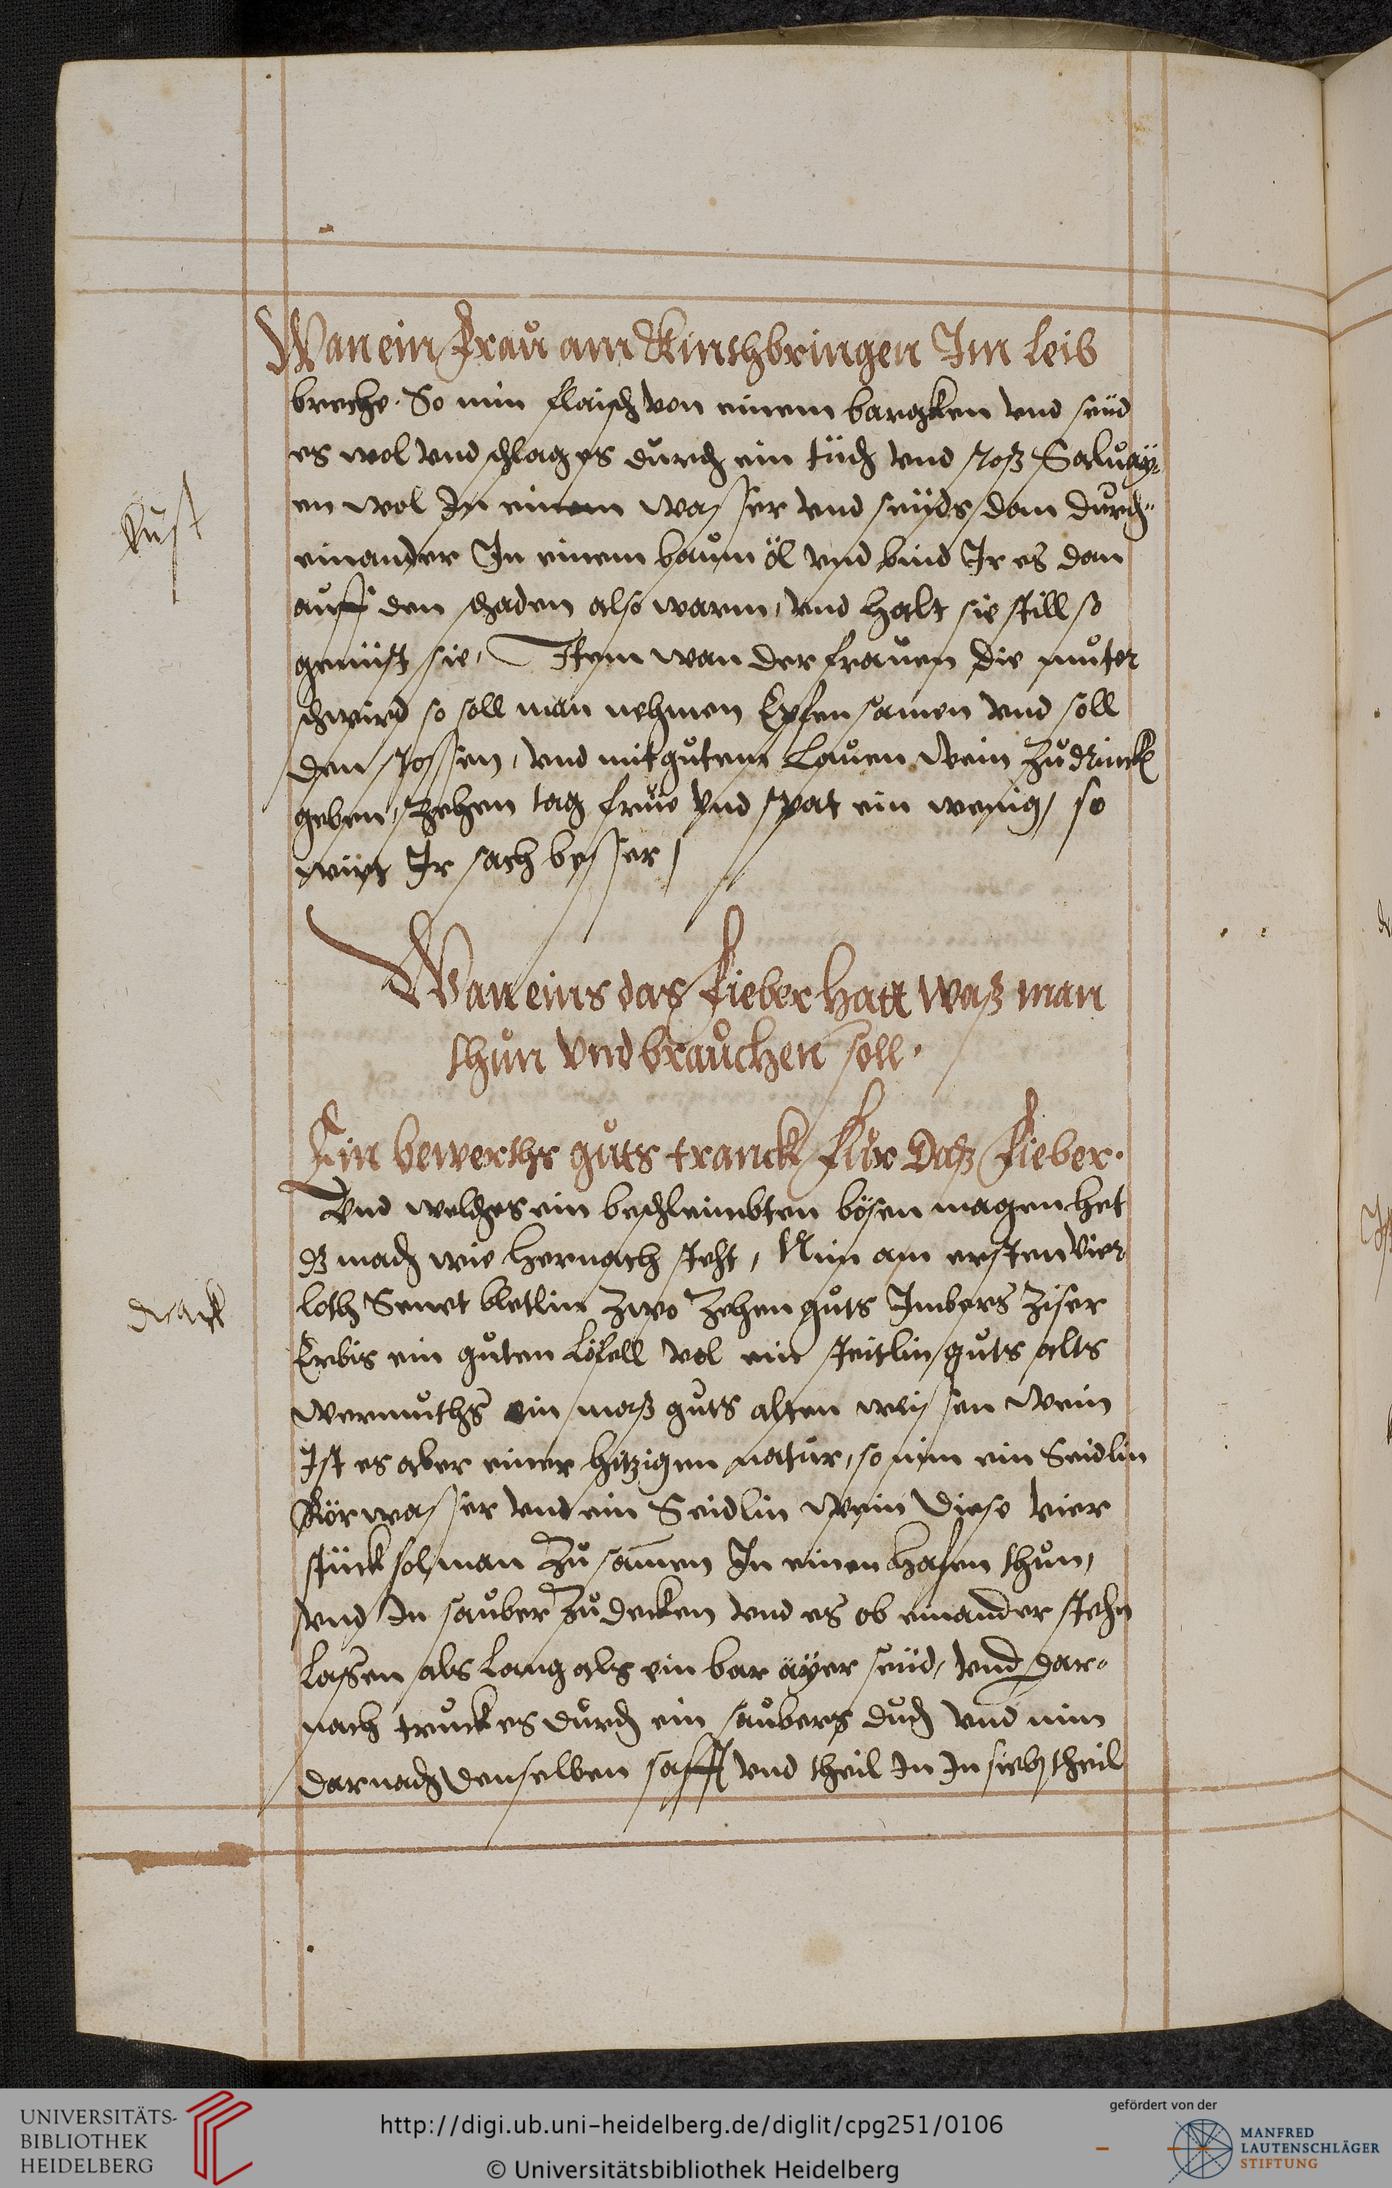 Wan ein frau am Kinthbringen Im leib
breche. So nim flaisch von einem bargken vnd seüd
es wol vnd schlag es durch ein tuch vnd stoß Saluay¬
en wol In einem wasser vnd seuds dan durch¬
einander In einem baum öl vnd bind Ir es dan
auff den schaden also warm, vnd halt sie still so
genüst sie, Item wan der frauen die muter
schwird so soll man nehmen Epfen samen vnd soll
den stossen, vnd mit gutem lauen wein zu drinck
geben, zehen tag frue vnd spat ein wenig, so
wirt Ir sach besser
Wan eins das fieber hatt waß man
thun vnd brauchen soll.
Ein bewerths guts tranck für daß fieber.
Vnd welches ein beschleimbten bösen magen het
dz mach wie hernach steht, Nim am ersten vier
loth Senet bletlin zwo zehen guts Imbers ziser
Erbis ein guten löfell vol ein seitlin guts alts
wermuths ein maß guts alten weissen wein
Ist es aber einer hitzigen natur, so nim ein Seidlin
Rörwasser vnd ein Seidlin wein Diese vier
stück sol man zusamen In einen hafen thun,
vnd In sauber zudecken vnd es ob einander stehn
lasen als lang als ein bar äyer seüd, vnd dar¬
nach truck es durch ein saubers duch vnd nim
darnach denselben safft vnd theil In In sieben theil
UNIVERSITÄTS-
BIBLIOTHEK
HEIDELBERG
http://digi.ub.uni-heidelberg.de/diglit/cpg251/0106
© Universitätsbibliothek Heidelberg
gefördert von der
MANFRED
LAUTENSCHLÄGER
STIFTUNG